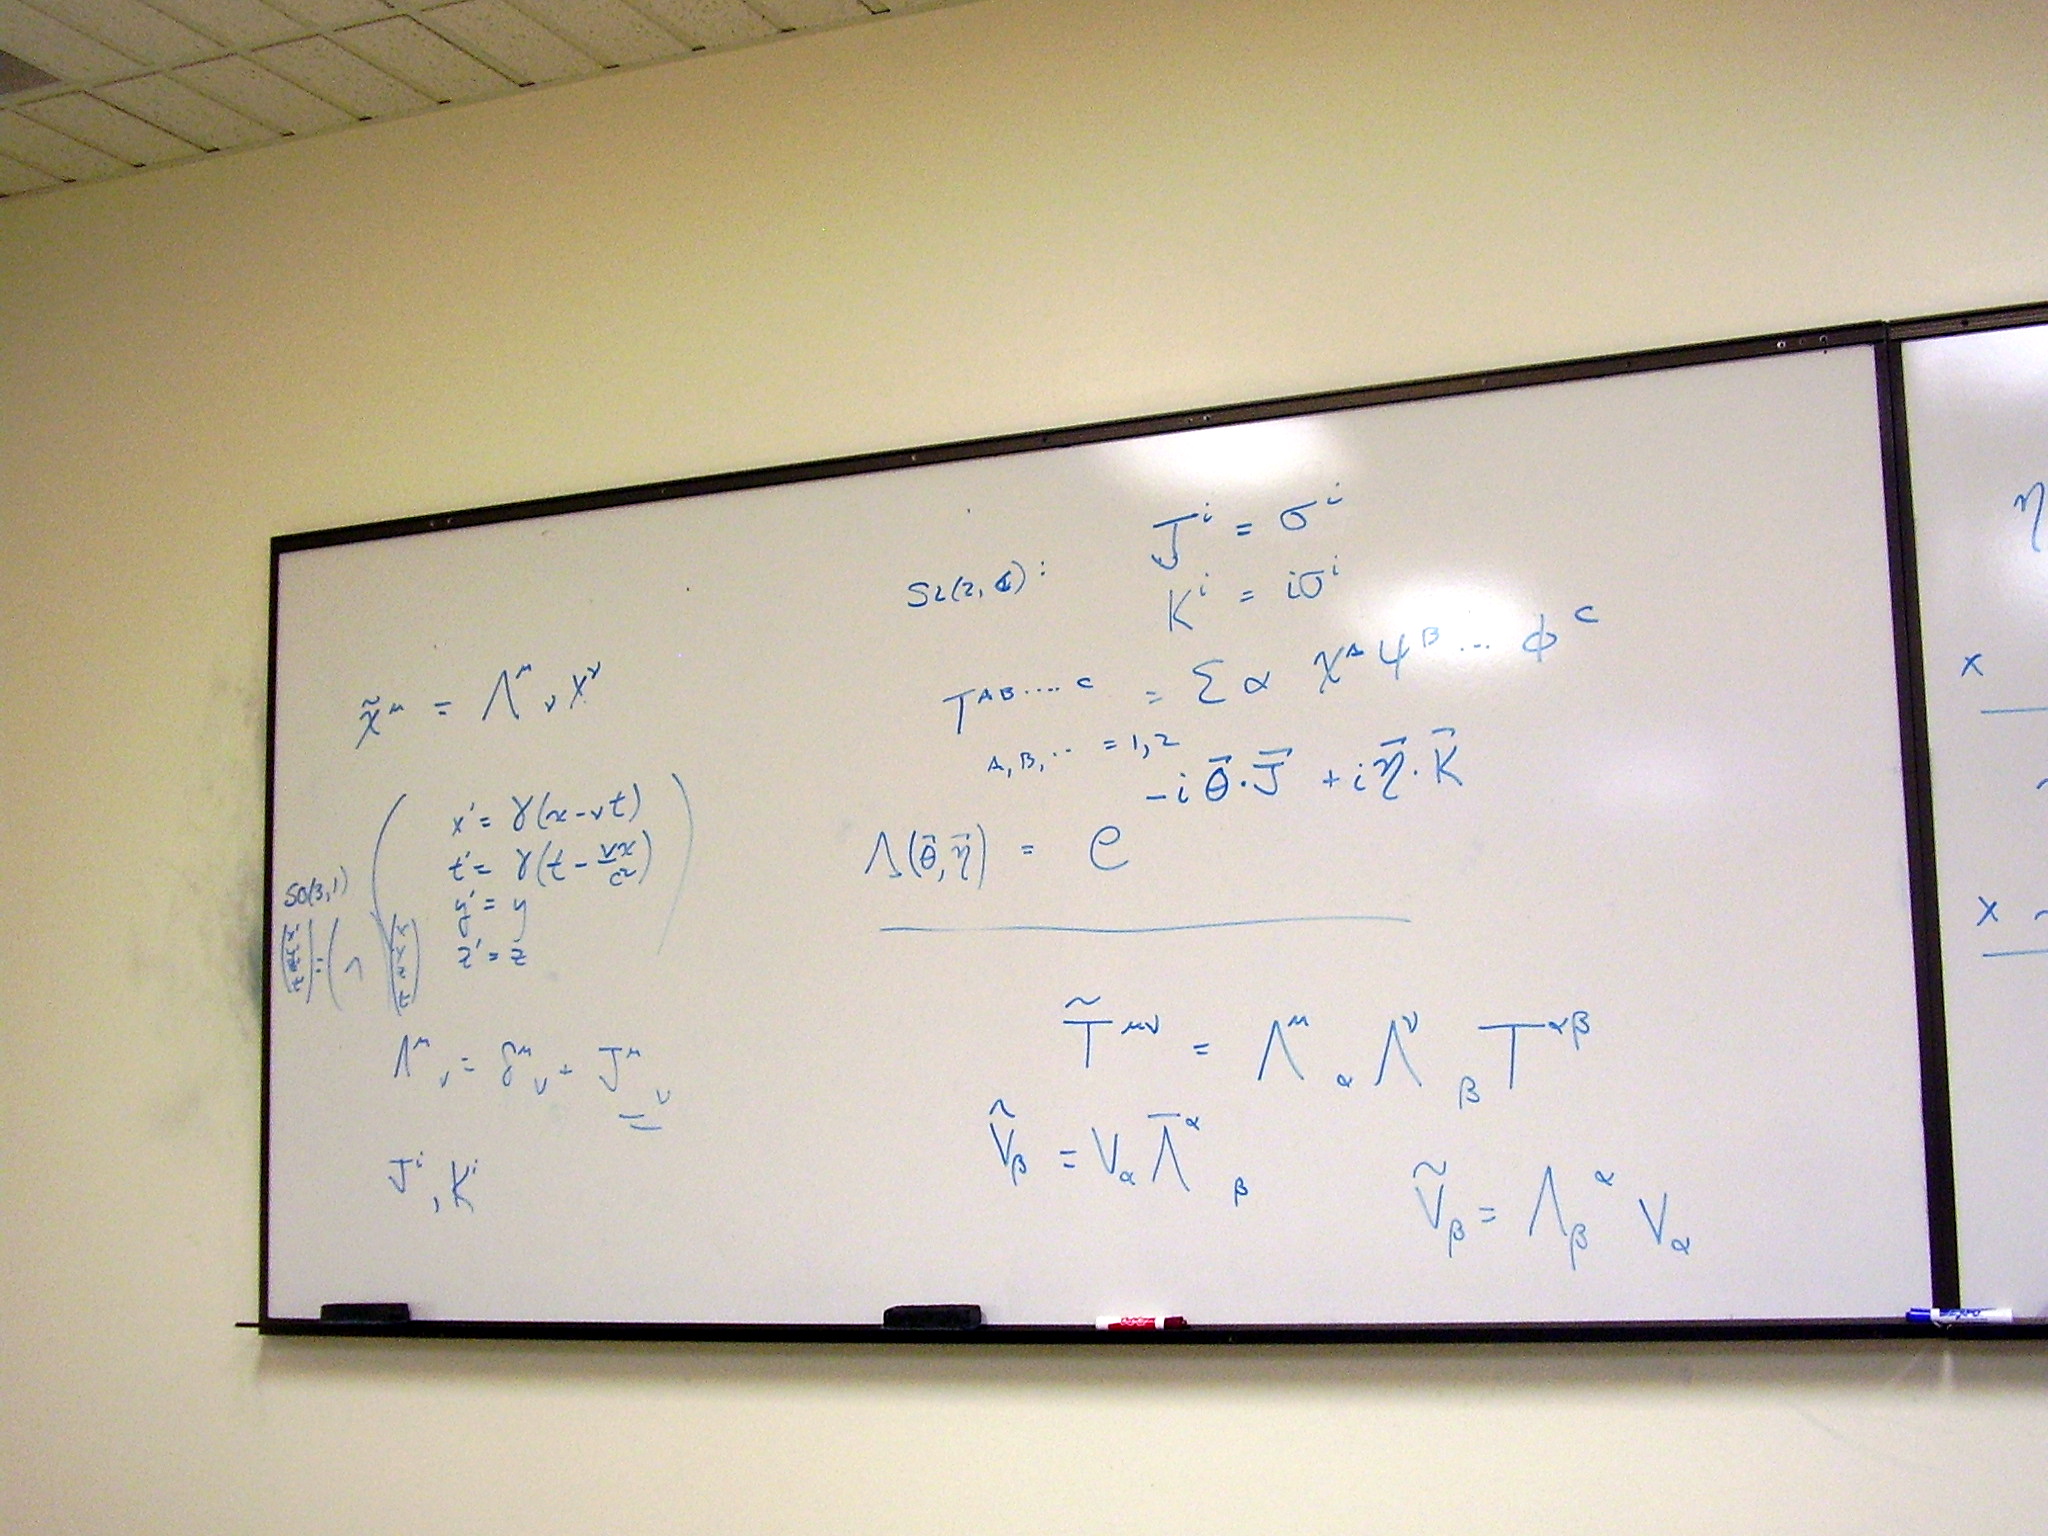 x̃^μ = Λ^μ_ν x^ν
x' = γ(x-vt)
t' = γ(t - vx/c²)
y' = y
z' = z
SO(3,1)
Λ^μ_ν = δ^μ_ν + J^μ_ν
J^i, K^i
SL(2,ℂ): J^i = σ^i
K^i = iσ^i
T^{AB....C} = Σ α χ^A ψ^B ... φ^C
A,B,.. = 1,2
Λ(θ⃗,η⃗) = e^{-iθ⃗·J⃗ + iη⃗·K⃗}
T̃^{μν} = Λ^μ_α Λ^ν_β T^{αβ}
Ṽ_β = V_α Λ̄^α_β
Ṽ_β = Λ_β^α V_α
η
x
x ~